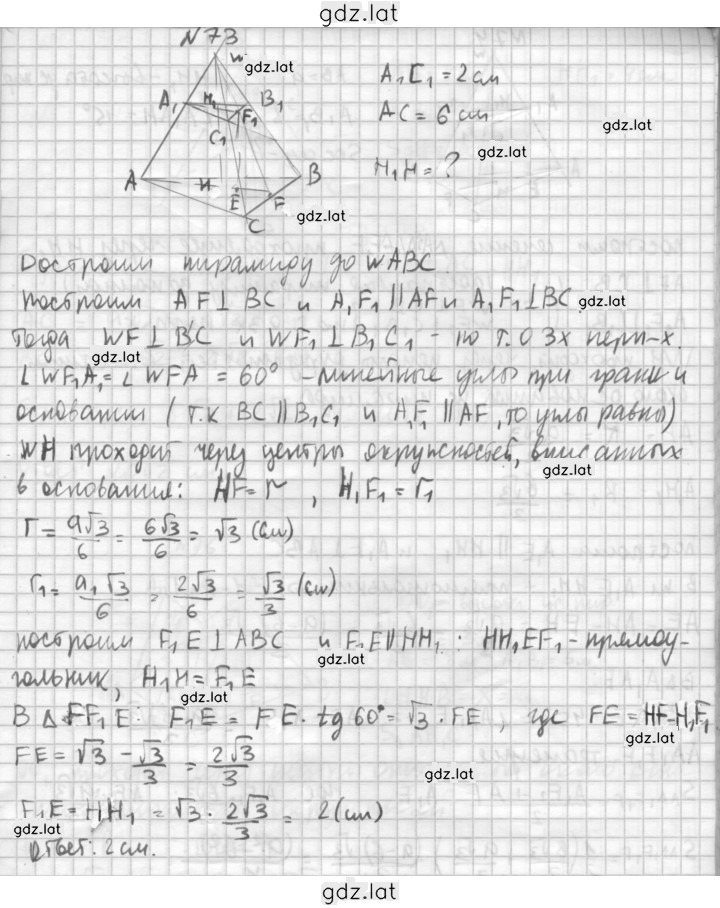 gdz.lat
N 73
W
gdz.lat
A₁ H₁ B₁
F₁
C₁
A H B
E F
C
gdz.lat
A₁C₁ = 2 см
AC = 6 см
gdz.lat
gdz.lat
H₁H = ?
Достроим пирамиду до WABC.
Построим AF ⊥ BC и A₁F₁ || AF и A₁F₁ ⊥ BC.
gdz.lat
Тогда WF ⊥ BC и WF₁ ⊥ B₁C₁ - по т. о 3х перп-х.
gdz.lat
∠WF₁A₁ = ∠WFA = 60° - линейные углы при грани и
основании (т.к BC || B₁C₁ и A₁F₁ || AF, то углы равны)
WH проходит через центры окружностей, вписанных
gdz.lat
в основания: HF = r, H₁F₁ = r₁
r = a√3/6 = 6√3/6 = √3 (см)
gdz.lat
r₁ = a₁√3/6 = 2√3/6 = √3/3 (см)
построим F₁E ⊥ ABC и F₁E || HH₁: HH₁EF₁ - прямоу-
gdz.lat
гольник, H₁H = F₁E
gdz.lat
В Δ FF₁E: F₁E = FE · tg 60° = √3 · FE, где FE = HF - H₁F₁
gdz.lat
FE = √3 - √3/3 = 2√3/3
gdz.lat
F₁E = HH₁ = √3 · 2√3/3 = 2 (см)
gdz.lat
Ответ: 2 см.
gdz.lat